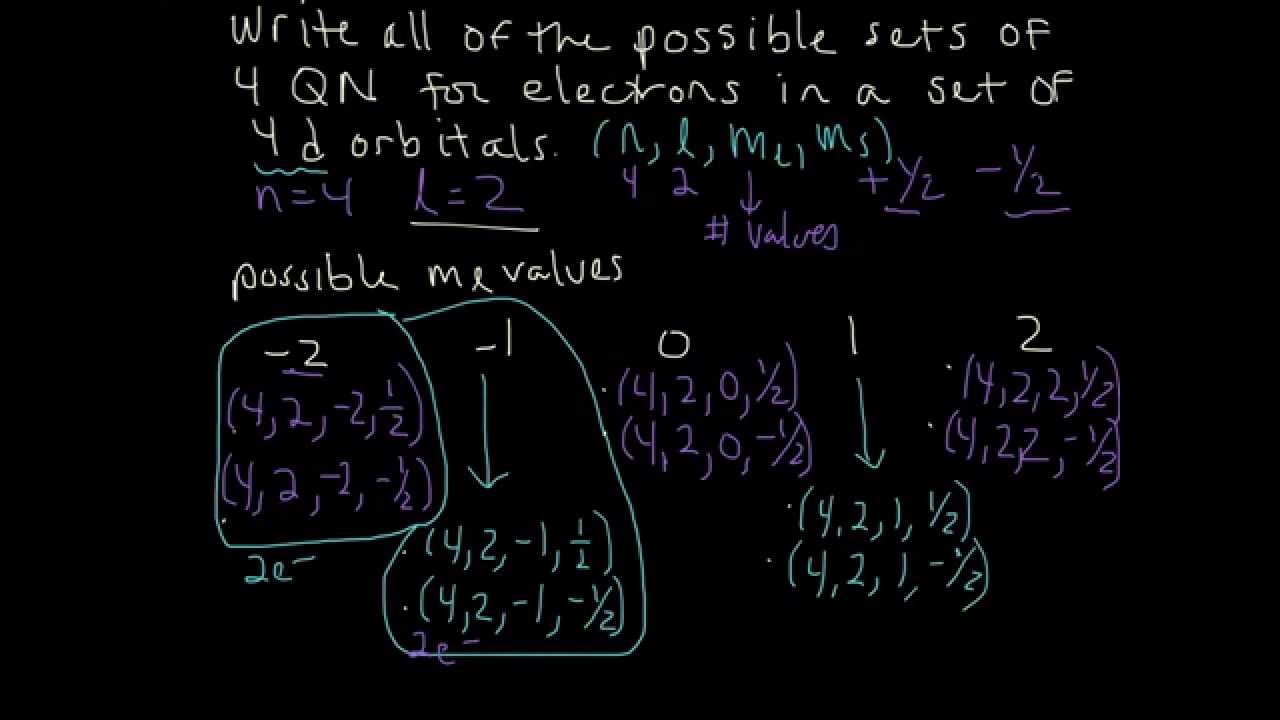 Write all of the possible sets of
4 QN for electrons in a set of
4d orbitals. (n, l, ml, ms)
n=4 l=2 4 2 +1/2 -1/2
# values
possible ml values
-2 -1 0 1 2
(4, 2, -2, 1/2)
(4, 2, -2, -1/2)
2e-
(4, 2, -1, 1/2)
(4, 2, -1, -1/2)
2e-
(4, 2, 0, 1/2)
(4, 2, 0, -1/2)
(4, 2, 1, 1/2)
(4, 2, 1, -1/2)
(4, 2, 2, 1/2)
(4, 2, 2, -1/2)